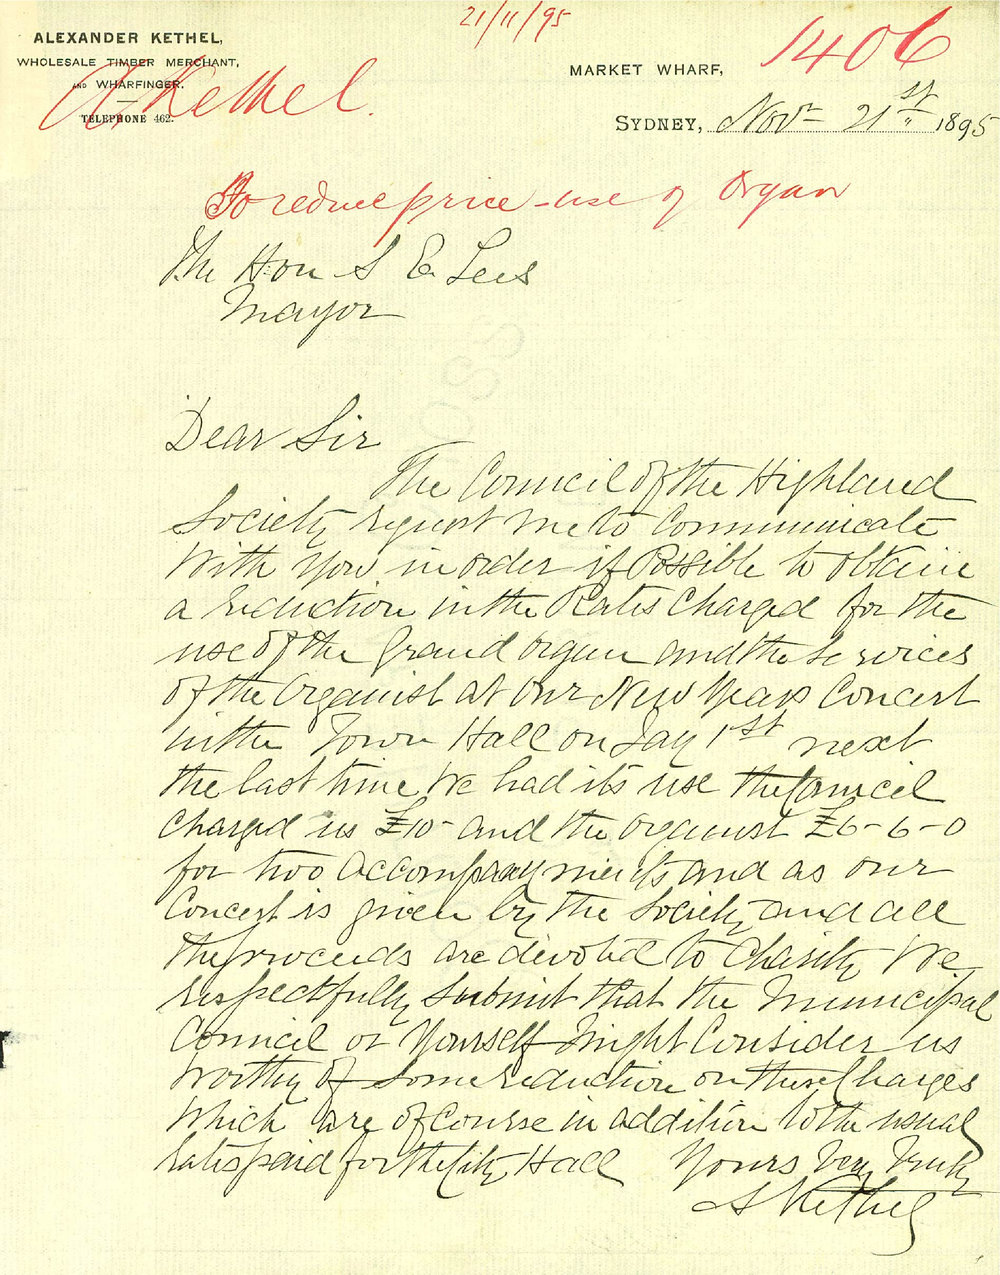 21/11/95
ALEXANDER KETHEL,
WHOLESALE TIMBER MERCHANT,
AND WHARFINGER.
TELEPHONE 462.
A Kethel.
1406
MARKET WHARF,
SYDNEY, Novr 21st 1895
To reduce price - use of Organ
The Hon S E Lees
Mayor
Dear Sir
The Council of the Highland
Society request me to Communicate
With You in order if Possible to obtain
a reduction in the Rates Charged for the
use of the Grand Organ and the Services
of the Organist at Our New Years Concert
in the Town Hall on Jay 1st next
the last time We had its use the Council
Charged us £10 - and the organist £6-6-0
for two accompanyments and as our
Concert is given by the Society and all
the proceeds are devoted to Charity We
respectfully submit that the Municipal
Council or Yourself might Consider us
Worthy of some reduction on these Charges
Which are of Course in addition to the usual
rates paid for the City Hall Yours Very Truly
A Kethel